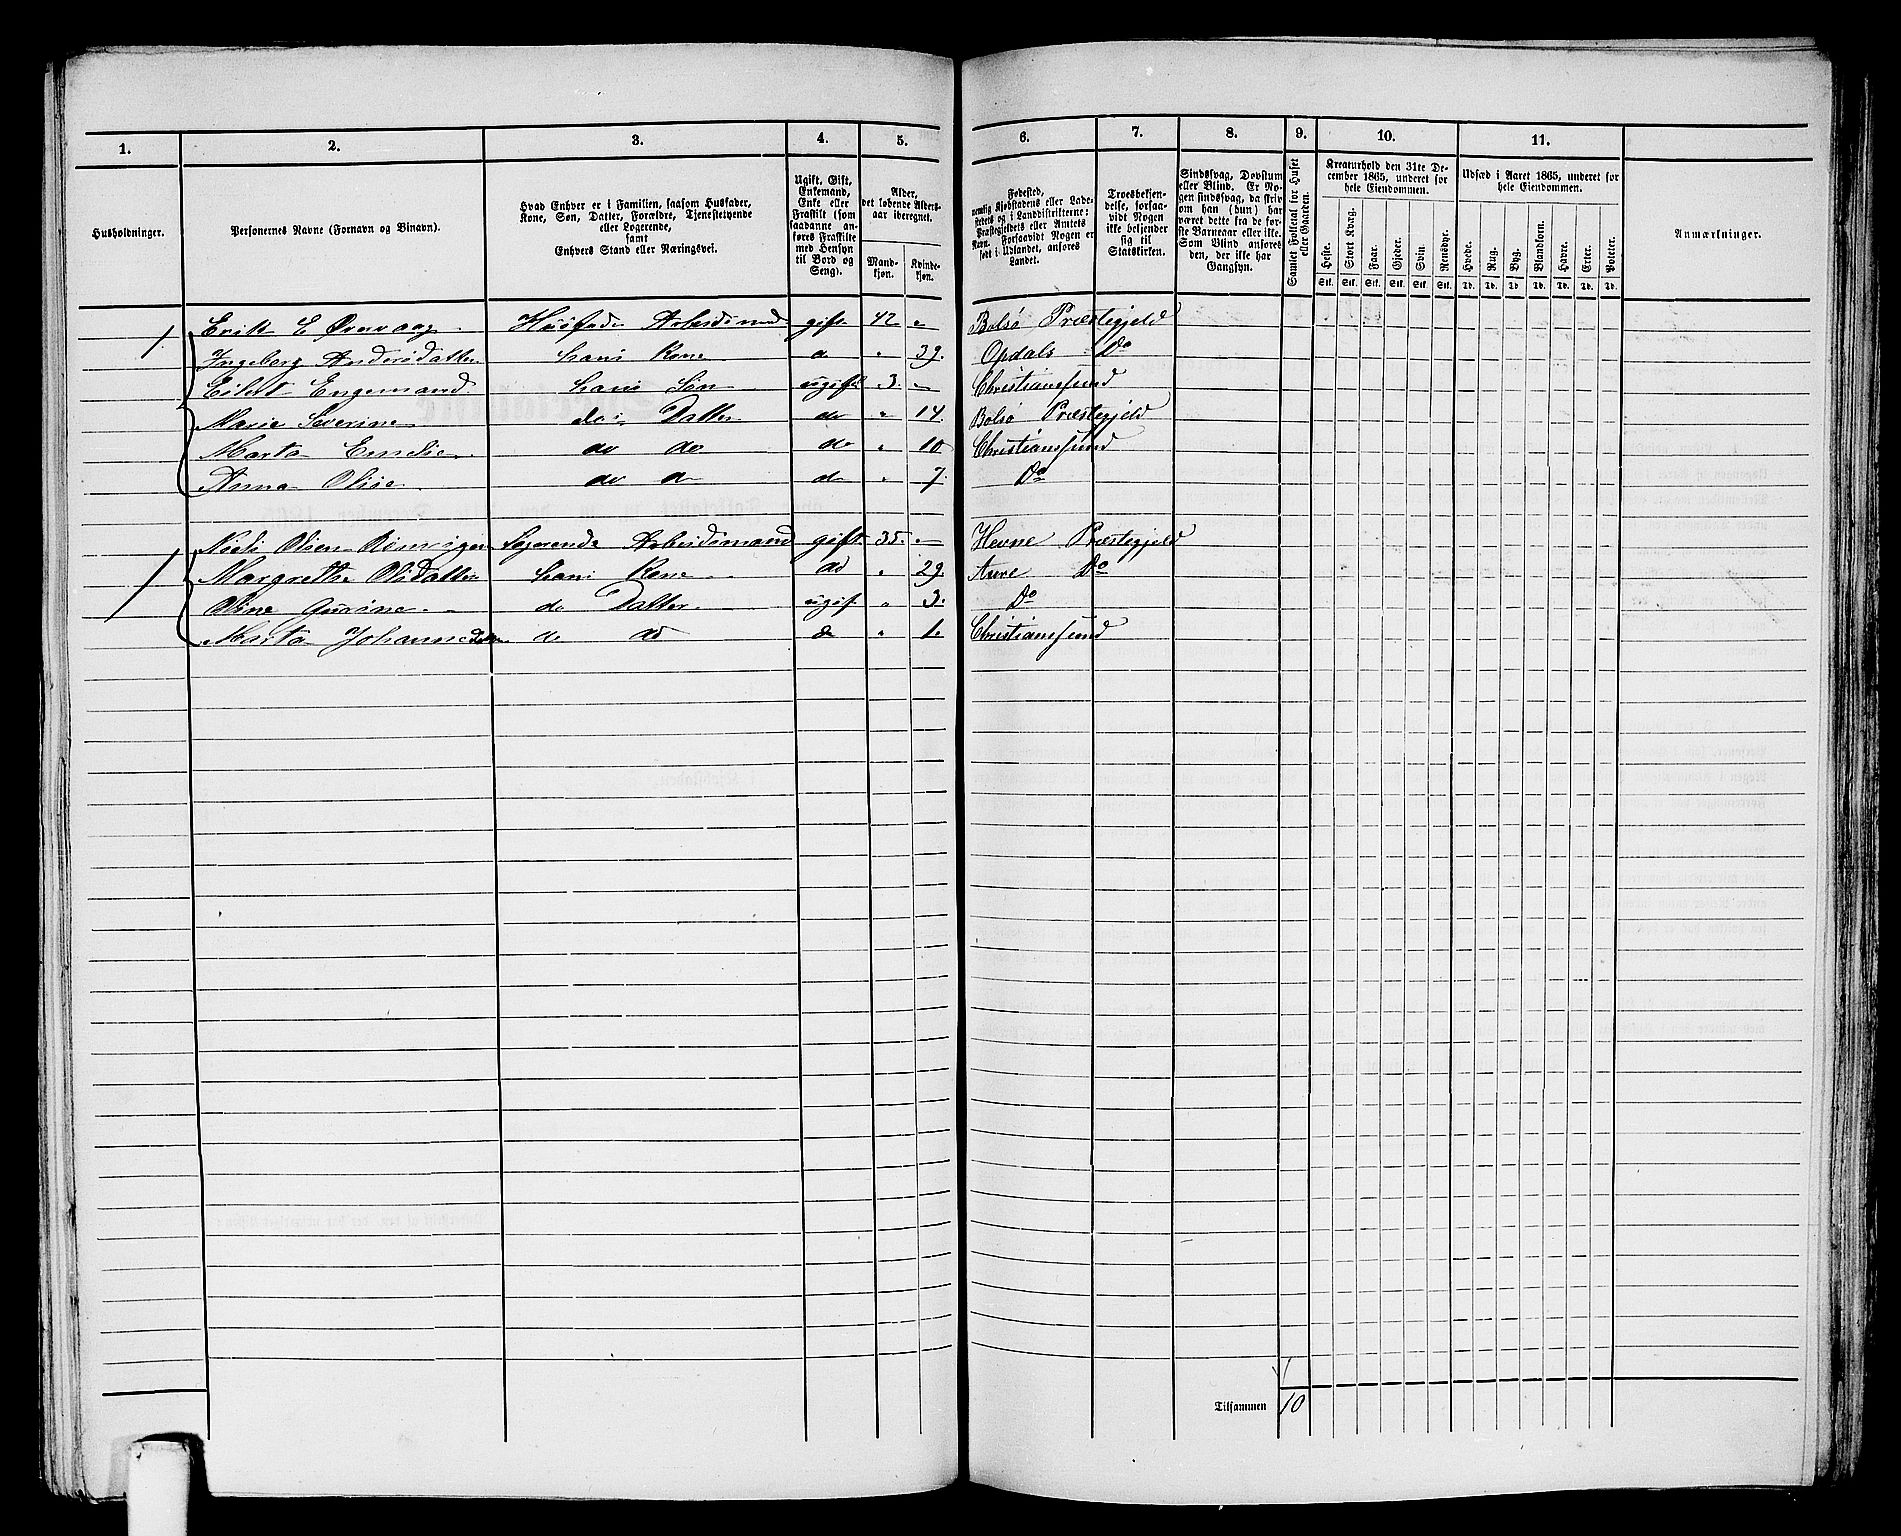 1. 2. 3. 4. 5. 6. 7. 8. 9. 10. 11.
Husholdninger.
Personernes Navne (Fornavn og Binavn).
Hvad Enhver er i Familien, saasom Husfader, Kone, Søn, Datter, Forældre, Tjenestetyende eller Logerende, samt Enhvers Stand eller Næringsvei.
Ugift, Gift, Enkemand, Enke eller Fraskilt (som saadanne anføres Fraskilte med Hensyn til Bord og Seng).
Alder, det løbende Aldersaar iberegnet.
Mandkjøn. Kvindekjøn.
Fødested, nemlig Kjøbstadens eller Ladestedets og i Landdistrikterne: Præstegjeldets eller Amtets Navn. Forsaavidt Nogen er født i Udlandet, anføres Landet.
Troesbekjendelse, forsaavidt Nogen ikke bekjender sig til Statskirken.
Sindssvag, Døvstum eller Blind. Er Nogen sindssvag, da skrives om han (hun) har været dette fra de første Barneaar eller ikke. Som Blind anføres den, der ikke har Gangsyn.
Samlet Folketal for Huset eller Gaarden.
Kreaturhold den 31te December 1865, underet for hele Eiendommen.
Heste. Stort Kvæg. Faar. Gjeder. Svin. Rensdyr.
Stk. Stk. Stk. Stk. Stk. Stk.
Udsæd i Aaret 1865, underet for hele Eiendommen.
Hvede. Rug. Byg. Blandkorn. Havre. Erter. Poteter.
Td. Td. Td. Td. Td. Td. Td.
Anmærkninger.
1 Erik E Husfader Arbeidsmd gift 42 " Bolsø Præstegjeld
Ingeborg Andersdatter hans Kone " 39. Opdals Do
Eilert Engemand hans Søn ugift 3. Christianssund
Marie Severine do Datter do " 14. Bolsø Præstegjeld
Marta Emelie do do do " 10 Christianssund
Anna Olise do do do " 7. Do
1 Niels Olsen Logerende Arbeidsmand gift 35. Hevne Præstegjeld
Margrethe Olsdatter hans Kone do " 29. Aure Do
Oline Gurine do Datter ugif. " 3. Do
Marta Johannedatter do do do " 1. Christianssund
Tilsammen 10